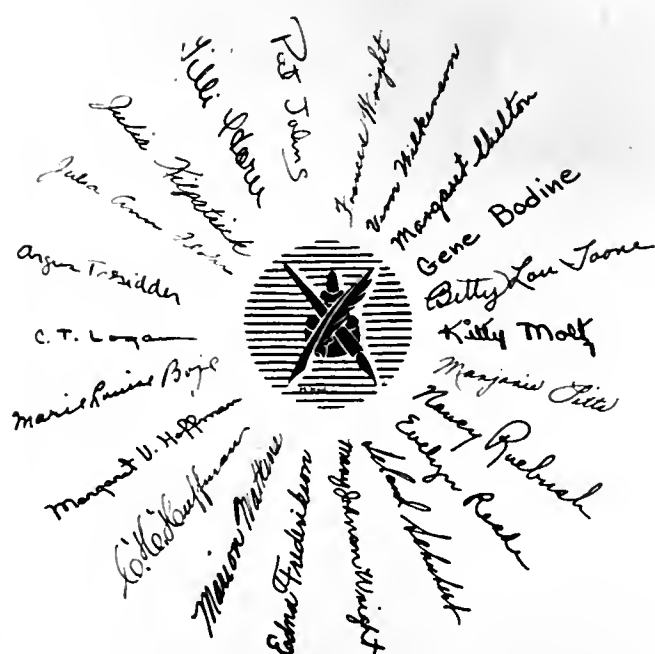 Pat Johns
Frances Wright
Vern Wilkerson
Margaret Shelton
Gene Bodine
Betty Lou Toone
Kitty Moltz
Marjorie Pitts
Nancy Ruebush
Evelyn Reade
Leland Schubert
Mary Johnson Wright
Edna Frederikson
Marion Watkins
C. H. Huffman
Margaret V. Hoffman
Marie Louise Boje
C. T. Logan
Argus Tresidder
Julia Ann
Julia Kilpatrick